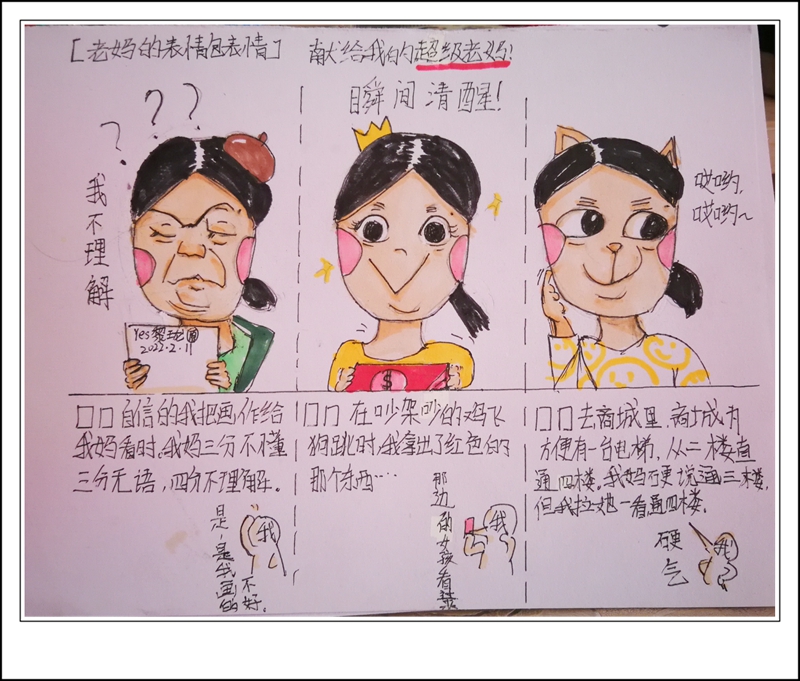 [老妈的表情包表情]
献给我的超级老妈!
? ? ?
我不理解
Yes
2022.2.11
口口自信的我把画作给
我妈看时,我妈三分不懂
三分无语,四分不理解.
是,是我画的不好.
我
瞬间清醒!
$
口口在吵架吵的鸡飞
狗跳时,我拿出了红色的
那个东西…
那边的女孩看
我
哎哟,
哎哟~
口口去商城里,商城内
方便有一台电梯,从二楼直
通四楼。我妈硬说通三楼,
但我拉她一看通四楼.
硬气
我